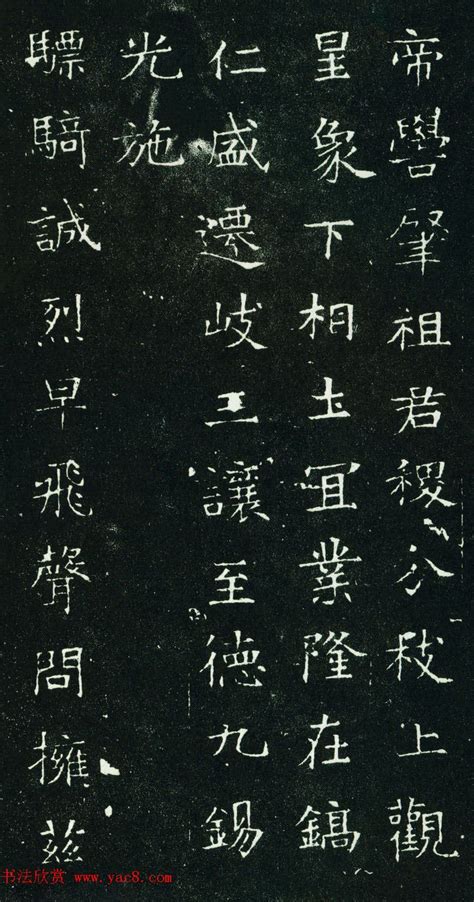 帝嚳肇祖若稷分枝上觀
星象下相土冝業隆在鎬
仁盛遷岐王讓至德九錫
光施
驃騎誠烈早飛聲問擁茲
书法欣赏 www.yac8.com